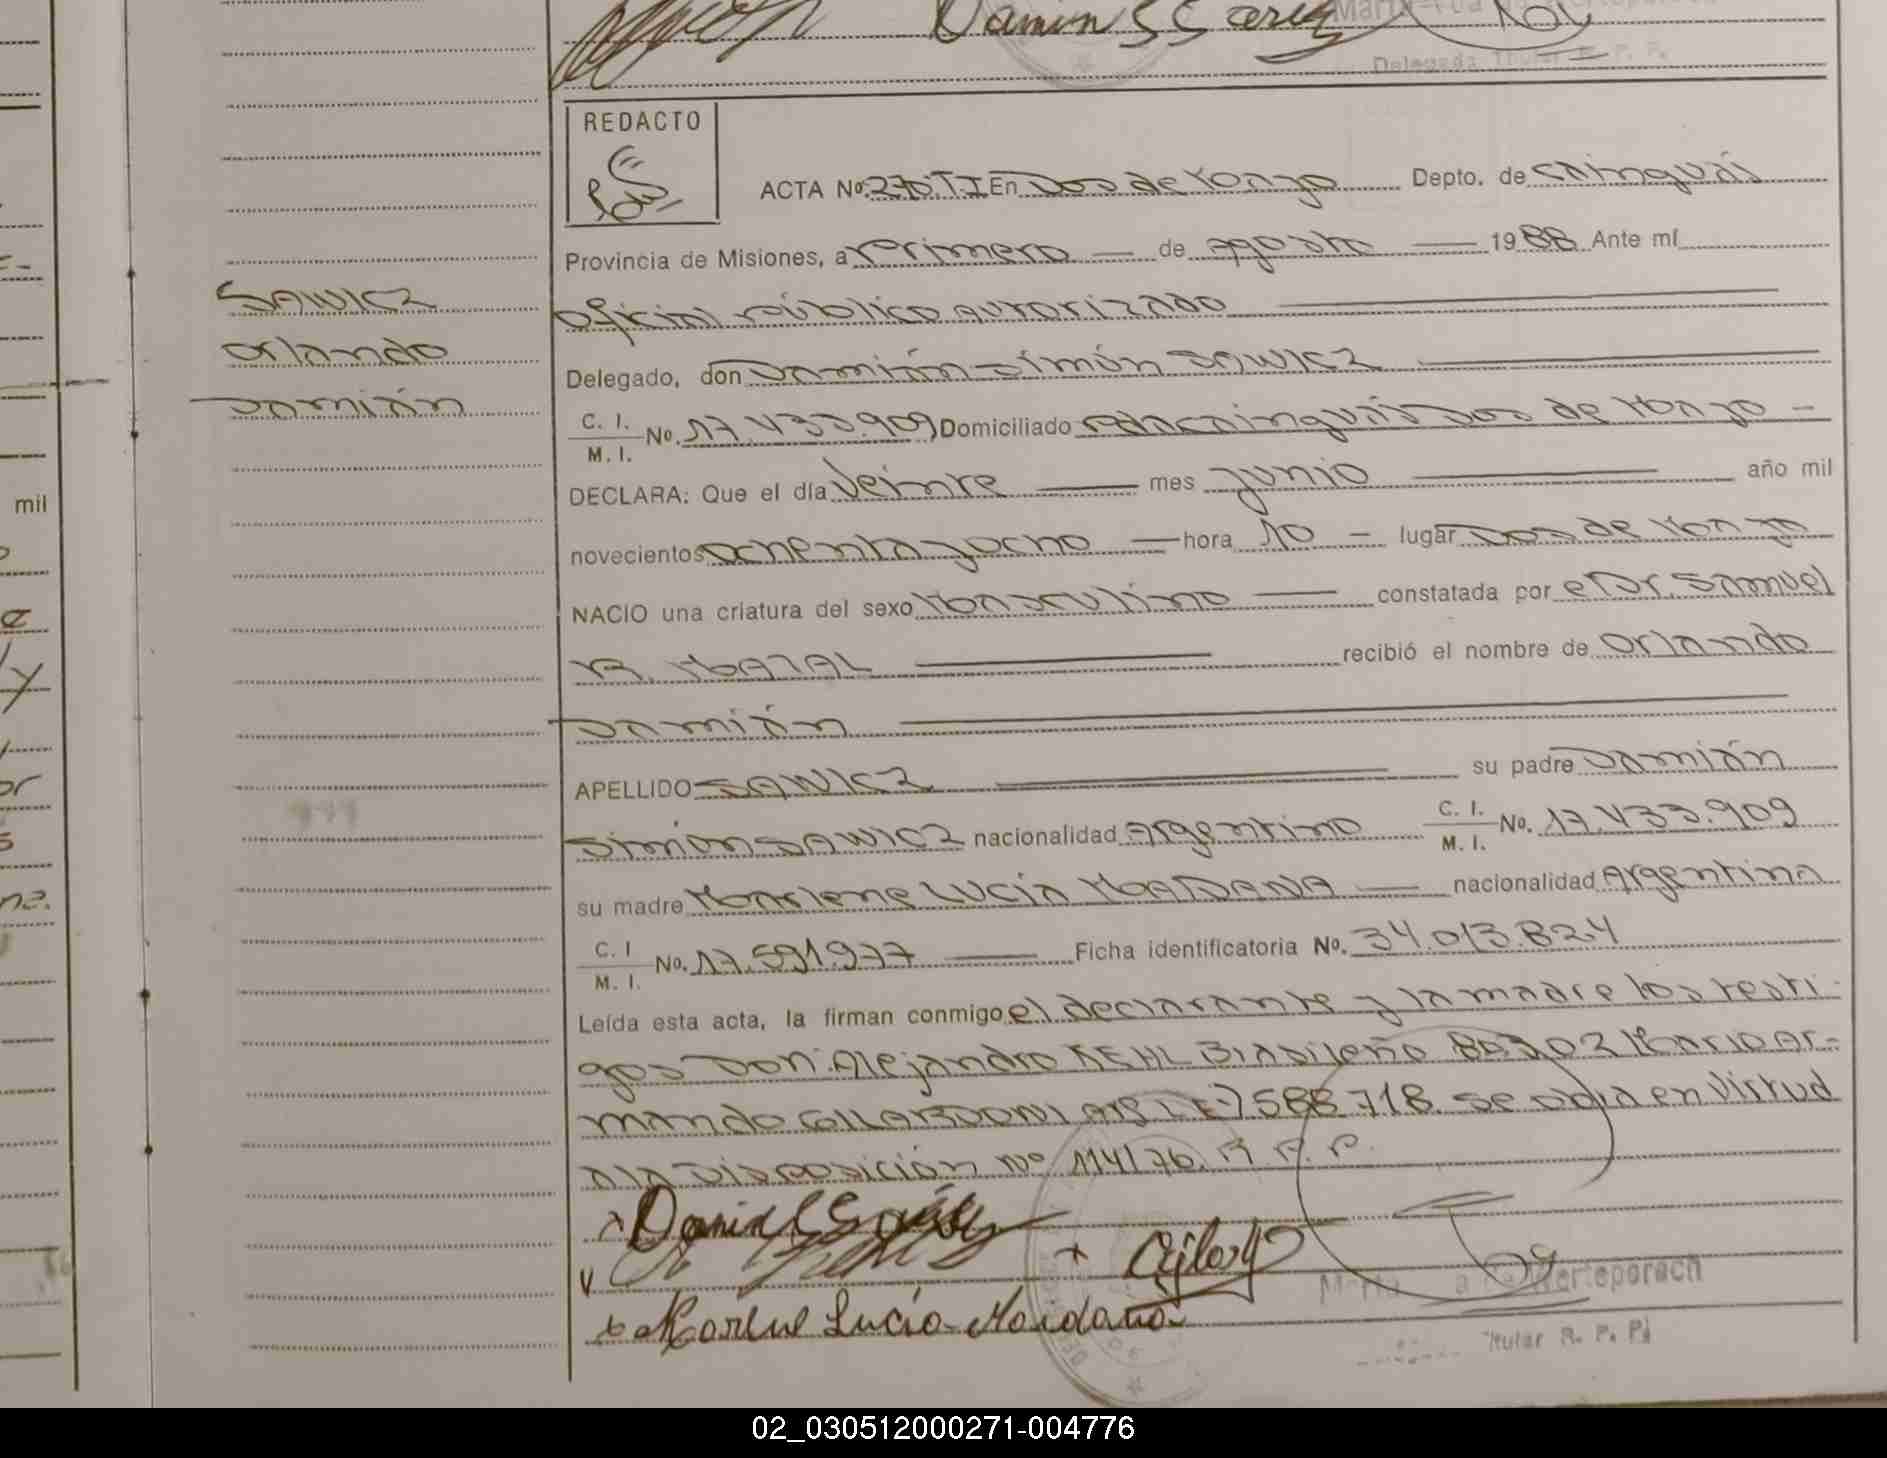 Damian S Sawicz
Delegada Titular R. P. P.
REDACTO
ACTA No. 270.T.I En Dos de Mayo Depto. de Cainguás
Provincia de Misiones, a Primero de Agosto 1988 Ante mí
Oficial Público Autorizado
Delegado, don Damián Simón SAWICZ
C. I.
M. I.
No. 17.433.909 Domiciliado Cainguás Dos de Mayo
DECLARA: Que el día Veinte mes Junio año mil
novecientos ochenta y ocho hora 10 lugar Dos de Mayo
NACIO una criatura del sexo Masculino constatada por el Dr. Samuel
R. MAZAL recibió el nombre de Orlando
Damián
APELLIDO SAWICZ su padre Damián
Simón SAWICZ nacionalidad Argentino C. I.
M. I. No. 17.433.909
su madre Marlene Lucía MAIDANA nacionalidad Argentina
C. I
M. I.
No. 17.591.977 Ficha identificatoria No. 34.013.824
Leída esta acta, la firman conmigo el declarante y la madre los testi-
gos Don: Alejandro KEHL Brasileño Mario Ar-
mando COLLAZDONI Arg L E 7588718. Se en Virtud
a la Disposición Nº 114/76. R. P. P.
Marlene Lucía Maidana
Werteporoch
Titular R. P. P.
SAWICZ
Orlando
Damián
mil
02_030512000271-004776